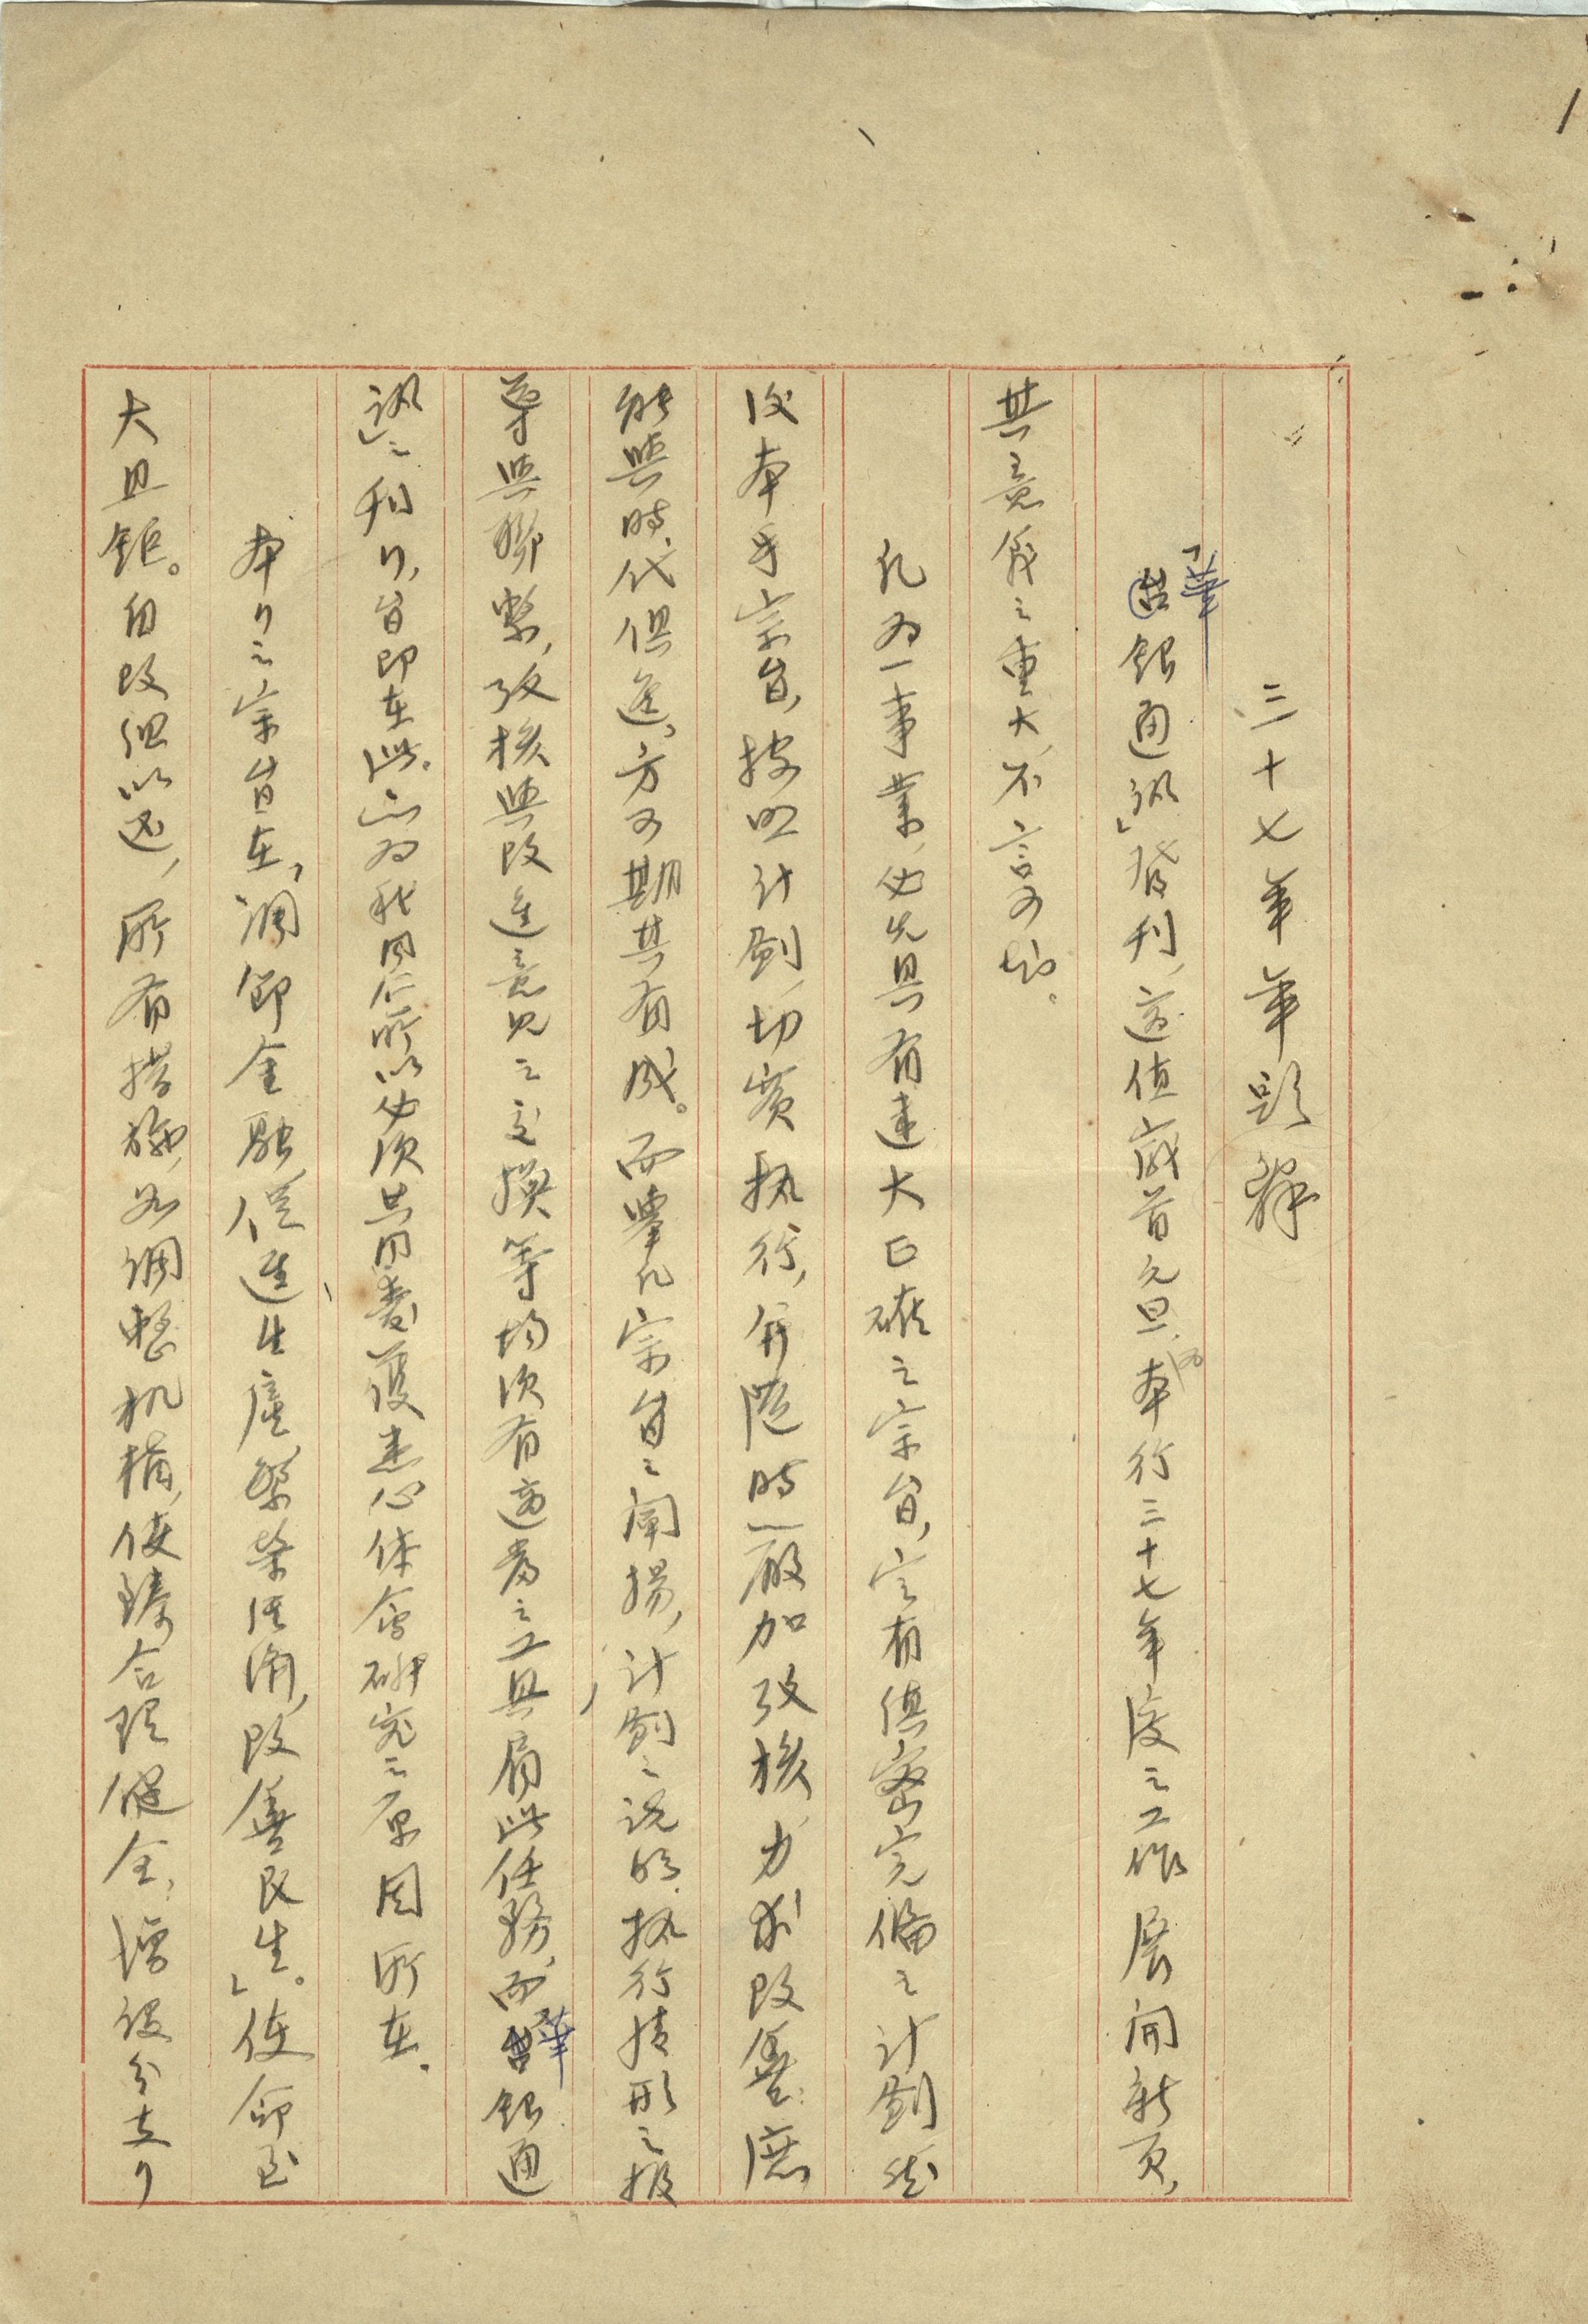 1
三十七年年頭辭
「華銀通訊」發刊，適值歲首元旦，為本行三十七年度之工作展開新頁，
其意義之重大，不言可知。
凡為一事業，必先具有遠大正確之宗旨，定有俱密完備之計劃，然
後本乎宗旨，按照計劃，切實执行，并隨時嚴加攷核，力求改善，庶
能與時代俱進，方可期其有成。而舉凡宗旨之闡揚，計劃之說明，执行情形之報
導與聯繫，攷核與改進意見之交換等均須有適當之工具肩此任務，而「華銀通
訊」之刊行，旨即在此。亦為我同仁所以必須共同愛護悉心体會研究之原因所在。
本行之宗旨在，調節金融，促進生產，繁榮經濟，改善民生。」使命至
大且鉅。自改組以還，所有措施，如調整机構，使臻合理健全，增設分支行